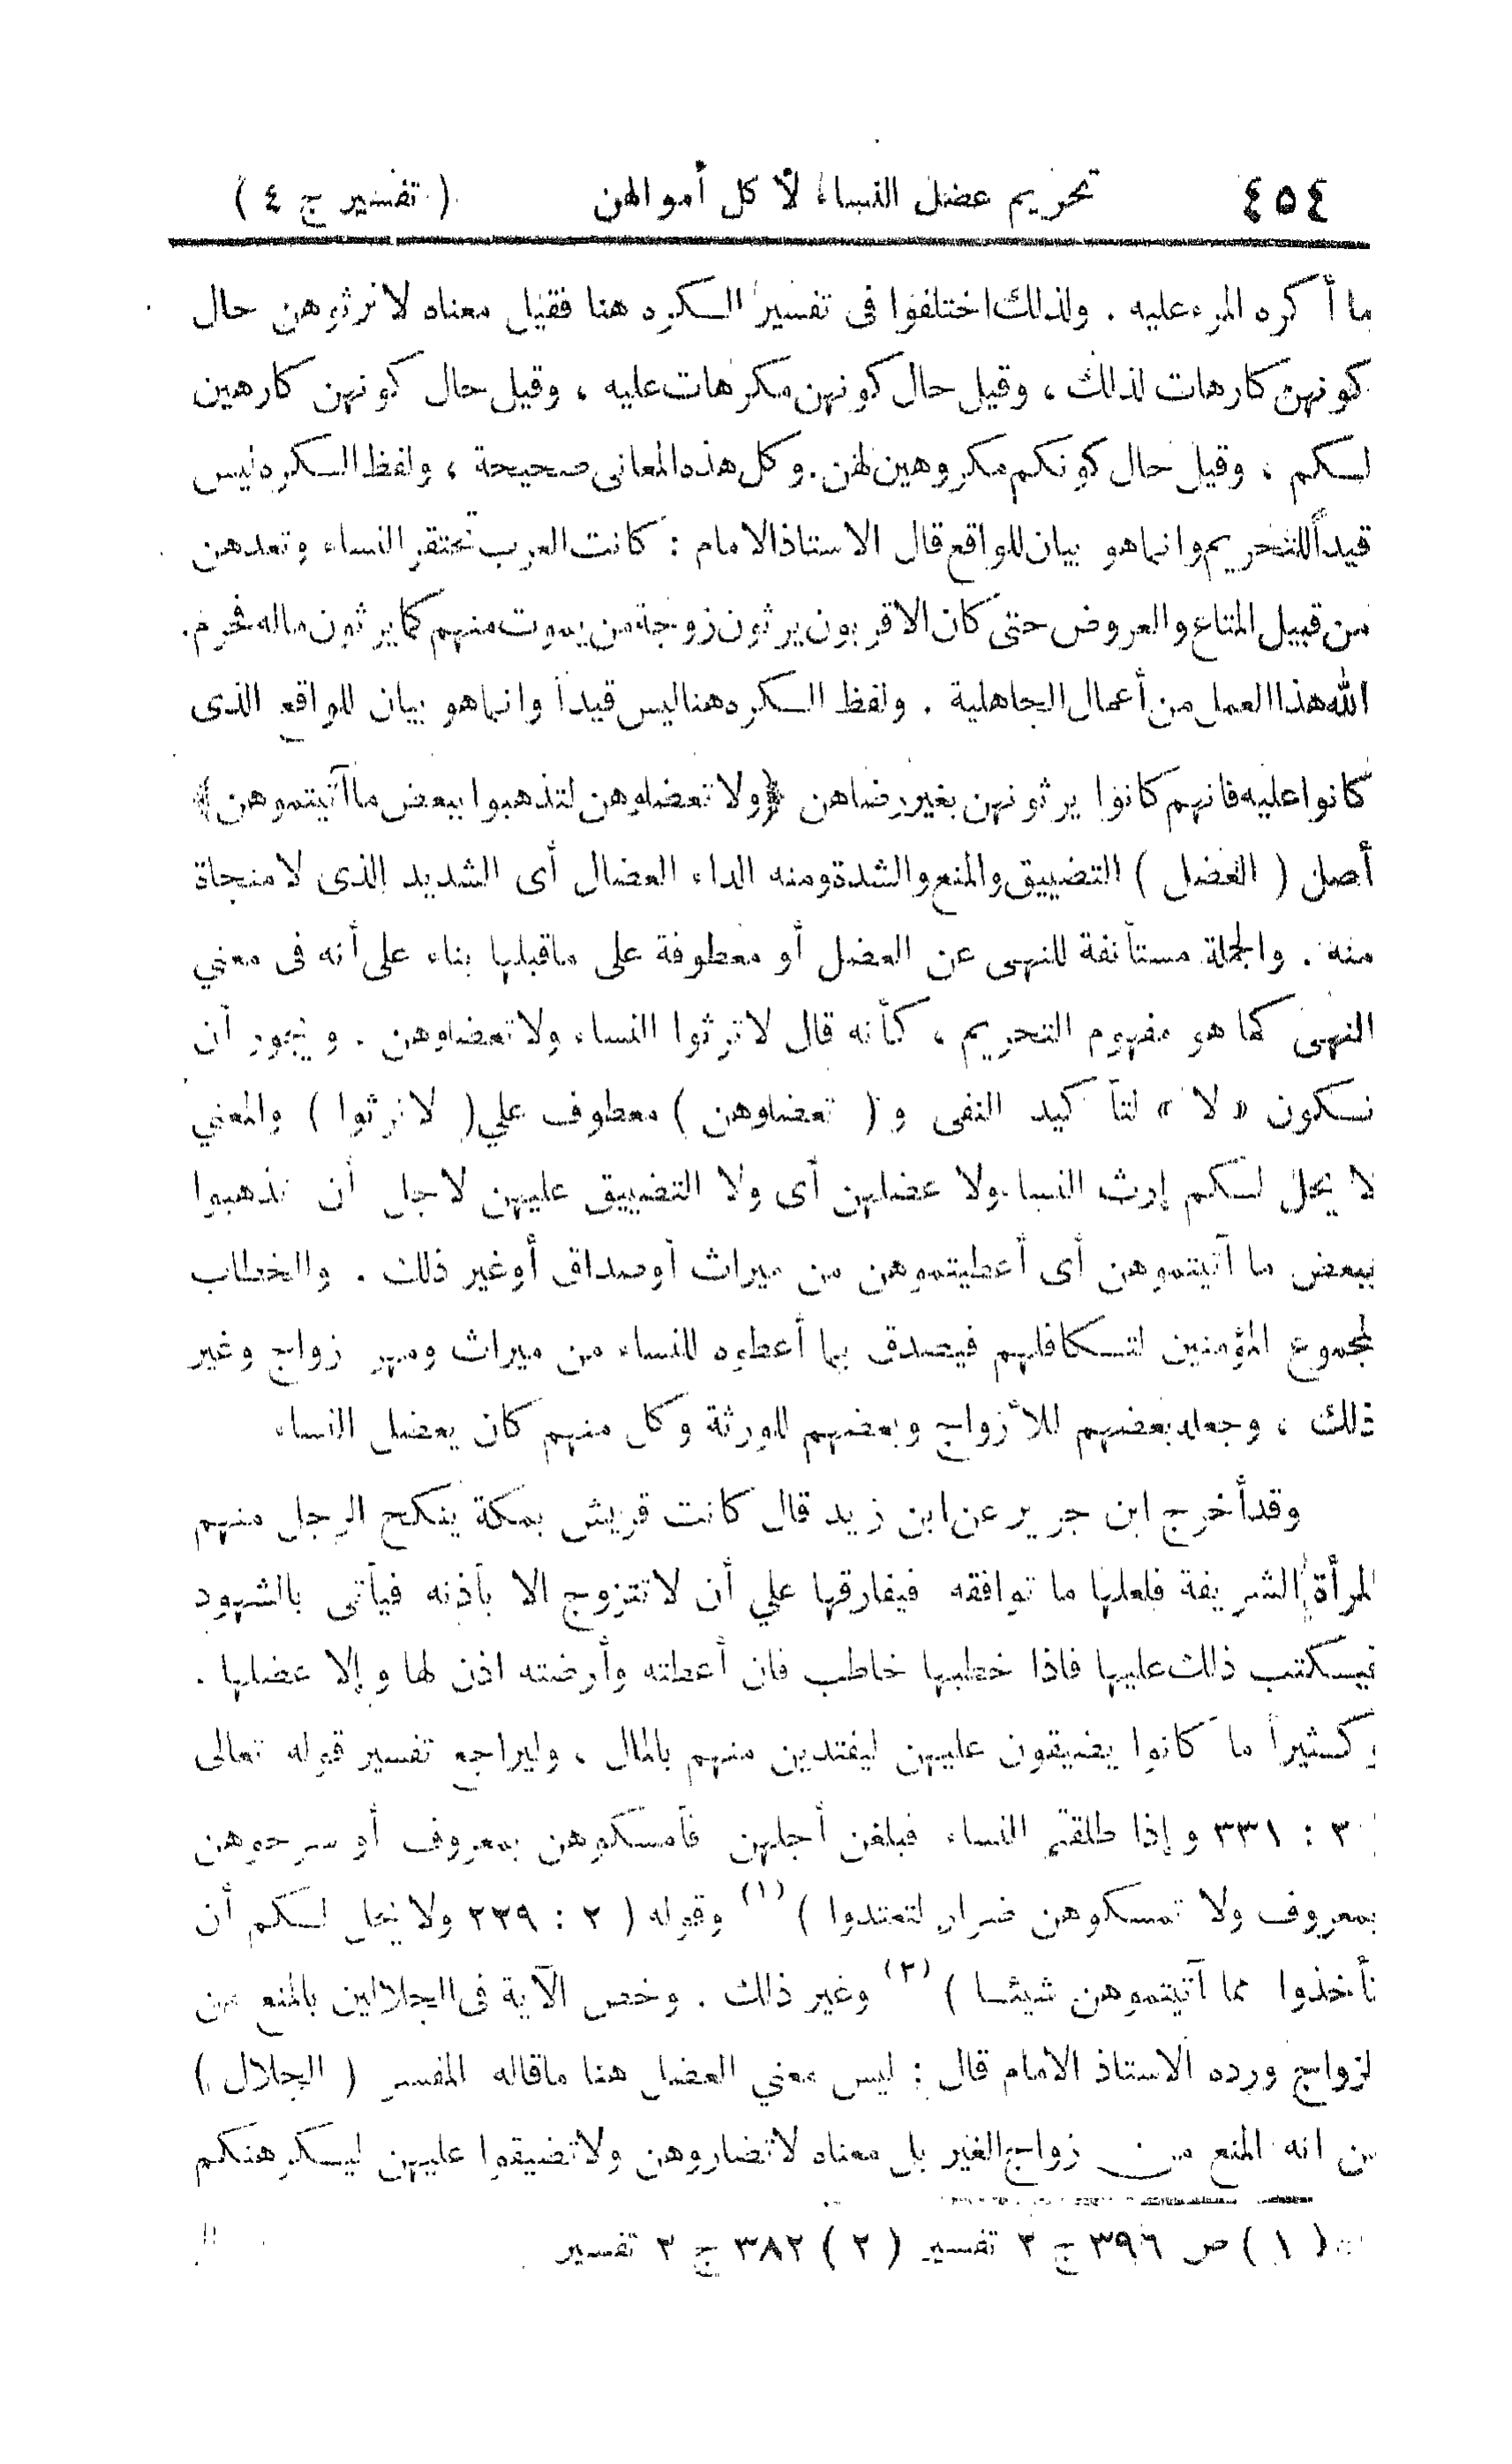 ٤٥٤ تحريم عضل النساء لأكل أموالهن ( تفسير ج ٤ )
ما أكره المرء عليه . ولذلك اختلفوا فى تفسير الكره هنا فقيل معناه لا ترثوهن حال
كونهن كارهات لذلك ، وقيل حال كونهن مكرهات عليه ، وقيل حال كونهن كارهين
لكم ، وقيل حال كونكم مكروهين لهن . وكل هذه المعانى صحيحة ، ولفظ الكره ليس
قيداً للتحريم وانما هو بيان للواقع قال الاستاذ الامام : كانت العرب تحتقر النساء وتعدهن
من قبيل المتاع والعروض حتى كان الاقربون يرثون زوجة من يموت منهم كما يرثون ماله فحرم
الله هذا العمل من أعمال الجاهلية . ولفظ الكره هنا ليس قيداً وانما هو بيان للواقع الذى
كانوا عليه فانهم كانوا يرثونهن بغير رضاهن ﴿ ولا تعضلوهن لتذهبوا ببعض ما آتيتموهن ﴾
أصل ( العضل ) التضييق والمنع والشدة ومنه الداء العضال أى الشديد الذى لا منجاة
منه . والجملة مستأنفة للنهى عن العضل أو معطوفة على ما قبلها بناء على أنه فى معنى
النهى كما هو مفهوم التحريم ، كأنه قال لا ترثوا النساء ولا تعضلوهن . ويجوز أن
تكون « لا » لتأكيد النفى و ( تعضلوهن ) معطوف على ( لا ترثوا ) والمعنى
لا يحل لكم إرث النساء ولا عضلهن أى ولا التضييق عليهن لاجل أن تذهبوا
ببعض ما آتيتموهن أى أعطيتموهن من ميراث أو صداق أو غير ذلك . والخطاب
لمجموع المؤمنين لتكافلهم فيصدق بما أعطوه للنساء من ميراث ومهر زواج وغير
ذلك ، وجعله بعضهم للأزواج وبعضهم للورثة وكل منهم كان يعضل النساء
وقد أخرج ابن جرير عن ابن زيد قال كانت قريش بمكة ينكح الرجل منهم
المرأة الشريفة فلعلها ما توافقه فيفارقها على أن لا تتزوج الا بأذنه فيأتى بالشهود
فيكتب ذلك عليها فاذا خطبها خاطب فان أعطته وأرضته اذن لها وإلا عضلها .
وكثيراً ما كانوا يضيقون عليهن ليفتدين منهم بالمال ، وليراجع تفسير قوله تعالى
٢ : ٢٣١ وإذا طلقتم النساء فبلغن أجلهن فأمسكوهن بمعروف أو سرحوهن
بمعروف ولا تمسكوهن ضرار لتعتدوا ) (١) وقوله ( ٢ : ٢٢٩ ولا يحل لكم أن
تأخذوا مما آتيتموهن شيئا ) (٢) وغير ذلك . وخص الآية فى الجلالين بالمنع من
الزواج ورده الاستاذ الامام قال : ليس معنى العضل هنا ما قاله المفسر ( الجلال )
من انه المنع من زواج الغير بل معناه لا تضاروهن ولا تضيقوا عليهن ليكرهنكم
( ١ ) ص ٣٩٦ ج ٢ تفسير ( ٢ ) ٣٨٢ ج ٢ تفسير